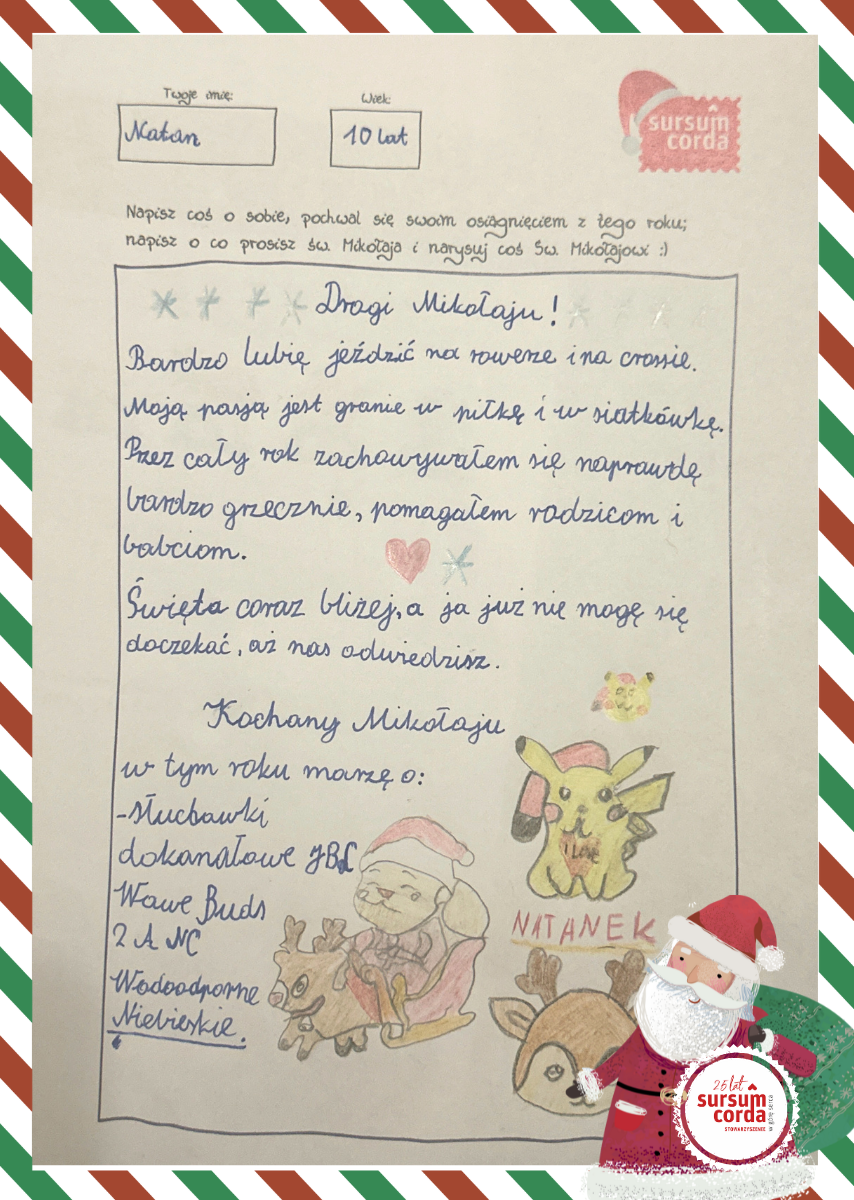 Twoje imię:
Wiek:
Natan
10 lat
sursum
corda
Napisz coś o sobie, pochwal się swoim osiągnięciem z tego roku;
napisz o co prosisz św. Mikołaja i narysuj coś Św. Mikołajowi :)
Drogi Mikołaju!
Bardzo lubię jeździć na rowerze i na crossie.
Moją pasją jest granie w piłkę i w siatkówkę.
Przez cały rok zachowywałem się naprawdę
bardzo grzecznie, pomagałem rodzicom i
babciom.
Święta coraz bliżej, a ja już nie mogę się
doczekać, aż nas odwiedzisz.
Kochany Mikołaju
w tym roku marzę o:
-słuchawki
dokanałowe JBL
Wawe Buds
2 A NC
Wodoodporne
Niebieskie.
I Love
NATANEK
26 lat
sursum
corda
STOWARZYSZENIE
w górę serca